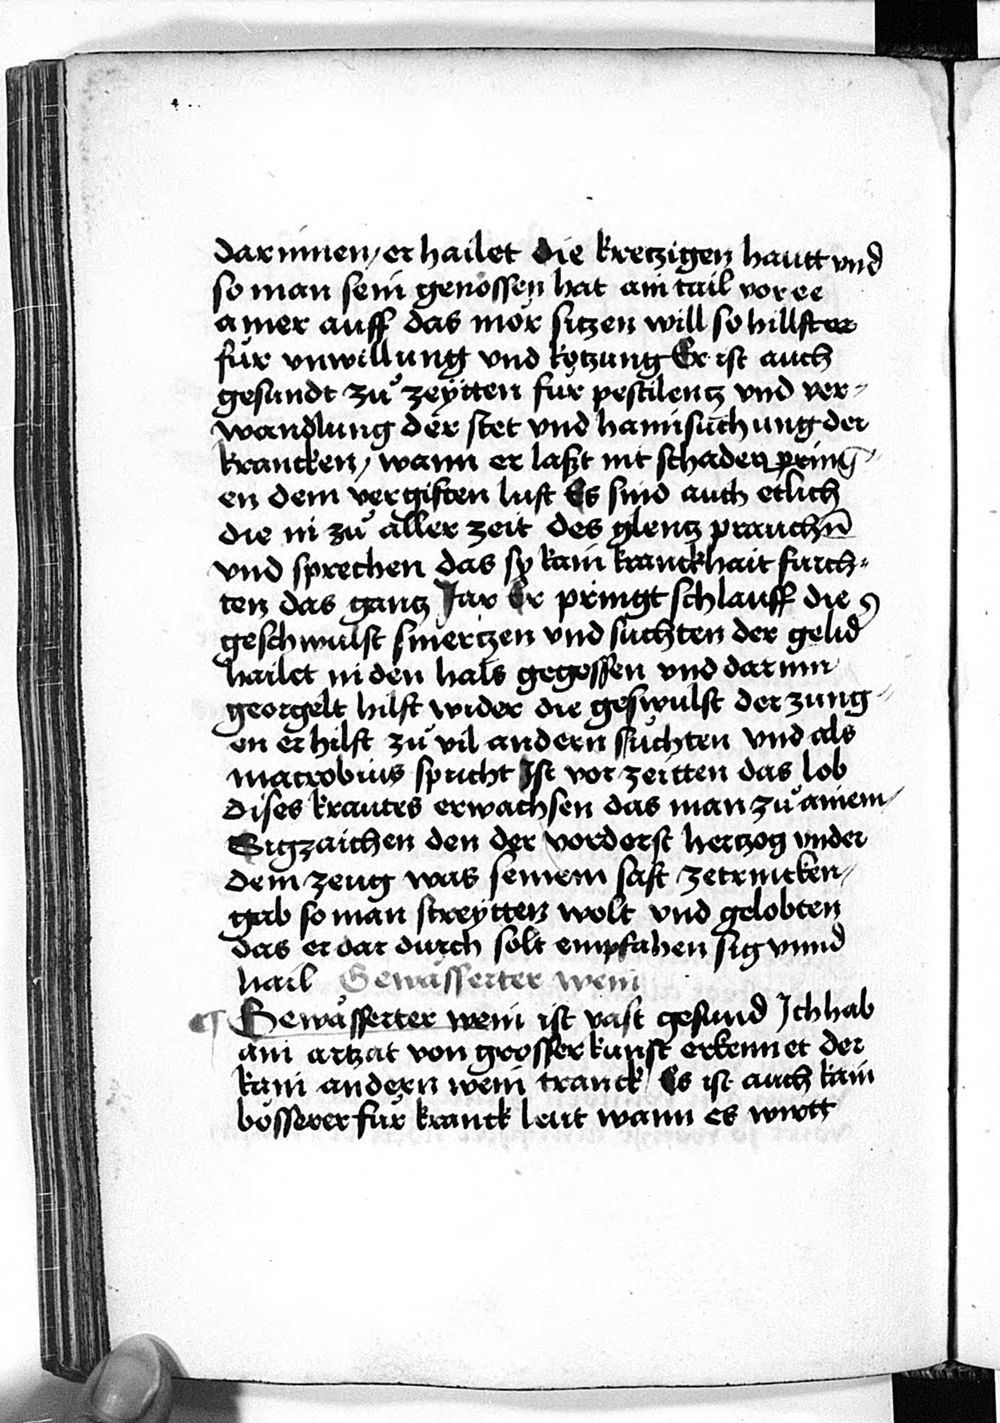 darinnen / er hailet die kretzigen hautt vnd
so man sein genossen hat ain tail vor ee
ainer auff das mör sitzen will so hillft er
für vnwillung vnd kotzung Er ist auch
gesundt zů zeytten für pestilentz vnd ver-
wandlung der stet vnd haimsůchung der
krancken / wann er laßt nit schaden pring-
en dem vergiften luft Es sind auch etlich
die in zů aller zeit des glentz prauchñ
vnd sprechen das sy kain kranckhait fürch-
ten das gantz Jar Er pringt schlauff die
geschwulst smertzen vnd suchten der gelid
hailet in den hals gegossen vnd darinn
georgelt hilft wider die geswulst der zung-
en er hilft zů vil andern suchten vnd als
macrobius spricht Ist vor zeitten das lob
dises krautes erwachsen das man zů ainem
Sigzaichen den der vorderst hertzog vnder
dem zeug was seinem saft zetrincken
gab so man streytten wolt vnd gelobten
das er dar durch solt empfahen sig vnnd
hail Gewässerter wein
Gewässerter wein ist vast gesund Ich hab
ain artzat von grosser kunst erkennet der
kain andern wein tranck / Es ist auch kain
bösserer für kranck leut wann es wirtt